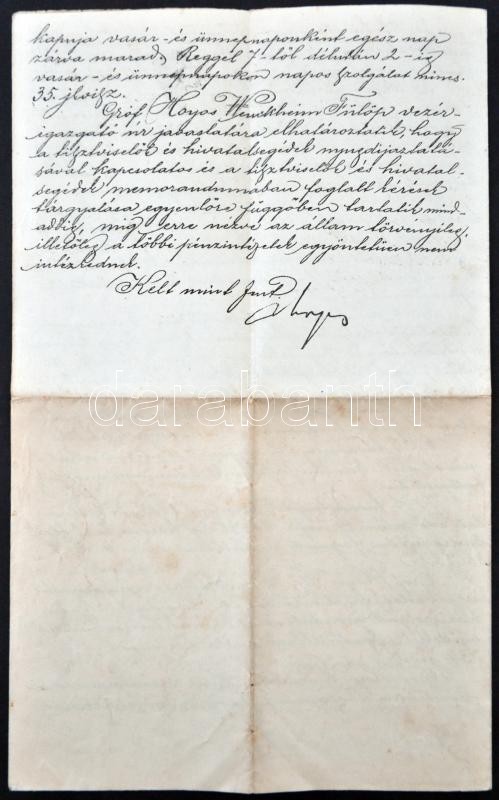 kapuja vasár- és ünnepnaponként egész nap
zárva marad. Reggel 7-től délután 2-ig
vasár- és ünnepnapokon napos szolgálat nincs.
35. jkvi sz.
Gróf Hoyos Wenckheim Fülöp vezér-
igazgató úr javaslatára elhatároztatik, hogy
a tisztviselők és hivatalsegédek nyugdíjaztatá-
sával kapcsolatos és a tisztviselők és hivatal-
segédek memorandumában foglalt kérések
tárgyalása egyenlőre függőben tartatik mind-
addig, míg erre nézve az állam törvényileg,
illetőleg a többi pénzintézetek egyöntetűen nem
intézkednek.
Kelt mint fent.
darabanth